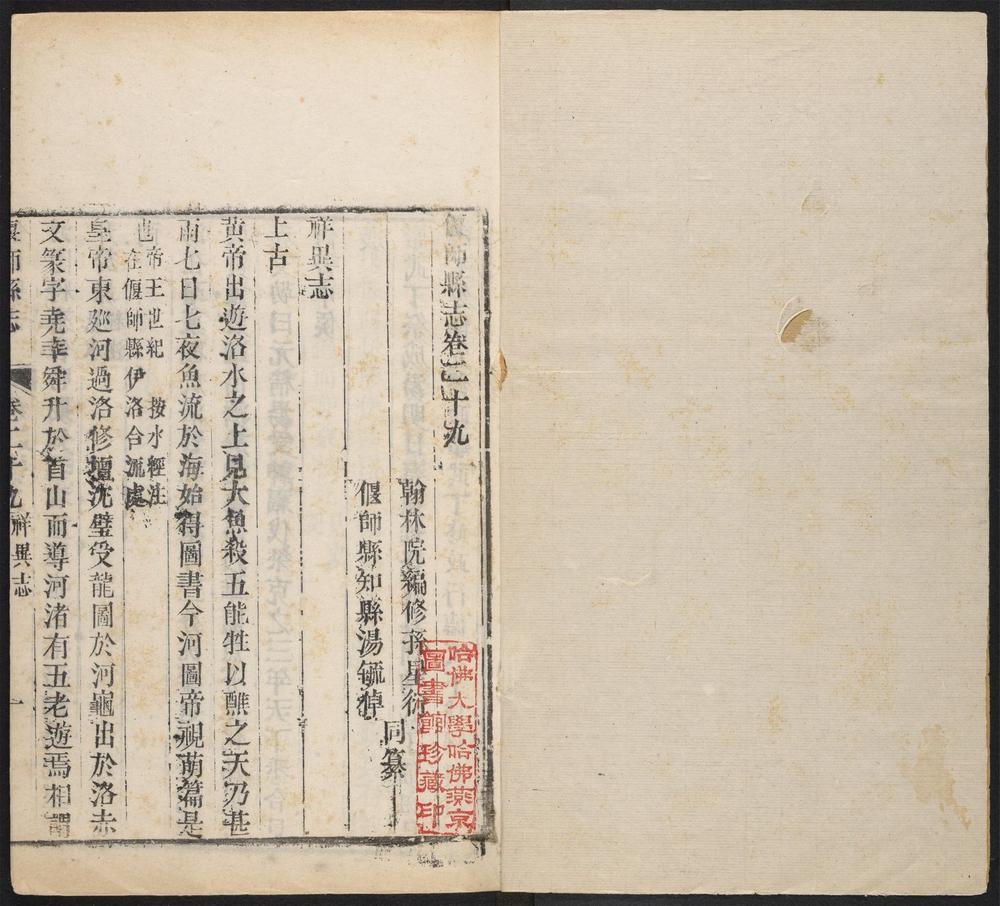 偃師縣志卷二十九
翰林院編修孫星衍
偃師縣知縣湯毓倬
同纂
祥異志
上古
黃帝出遊洛水之上見大魚殺五能牲以醮之天乃甚
雨七日七夜魚流於海始得圖書今河圖帝視萌篇是
也帝王世紀 按水經注
在偃師縣伊洛合流處
皇帝東廵河過洛修壇沈璧受龍圖於河龜出於洛赤
文篆字堯率舜升於首山而導河渚有五老遊焉相謂
偃師縣志
卷二十九祥異志
一
哈佛大學哈佛燕京
圖書館珍藏印